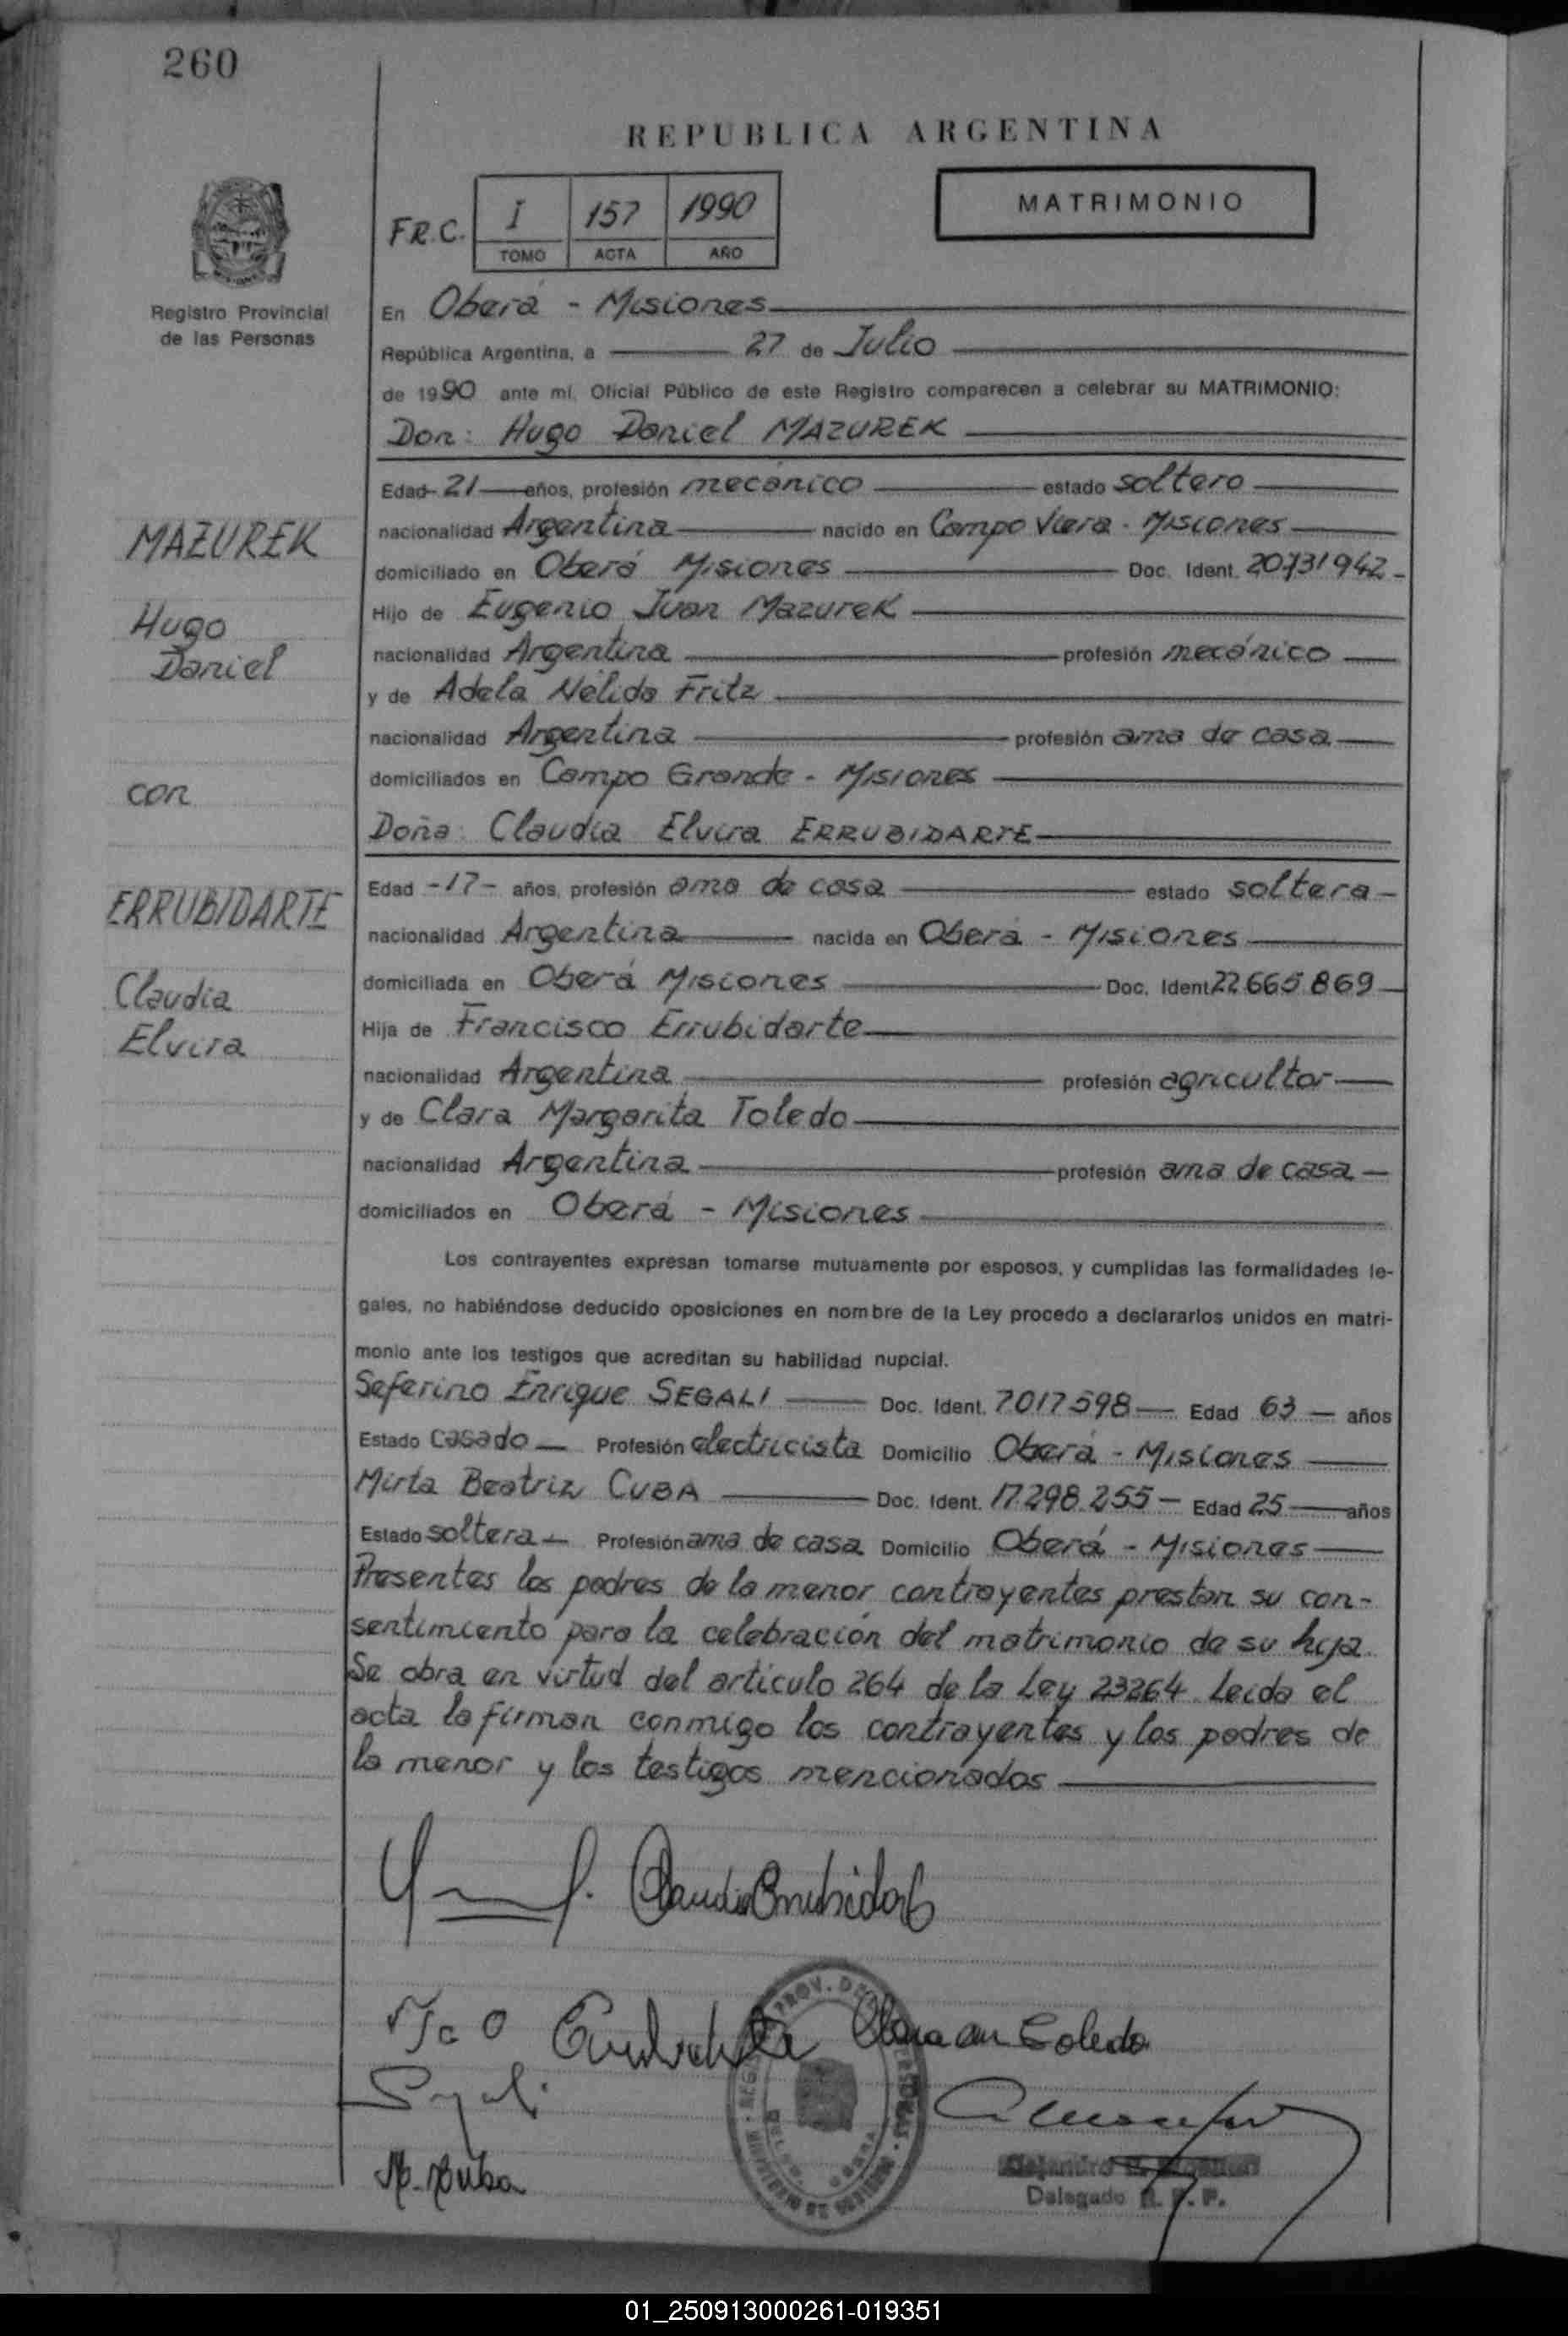 260
REPUBLICA ARGENTINA
MATRIMONIO
F.R.C. I 157 1990
TOMO ACTA AÑO
Registro Provincial
de las Personas
En Oberá - Misiones
República Argentina, a 27 de Julio
de 1990 ante mí, Oficial Público de este Registro comparecen a celebrar su MATRIMONIO:
Don: Hugo Daniel MAZUREK
Edad 21 años, profesión mecánico estado soltero
nacionalidad Argentina nacido en Campo Viera - Misiones
domiciliado en Oberá Misiones Doc. Ident. 20731942-
Hijo de Eugenio Juan Mazurek
nacionalidad Argentina profesión mecánico
y de Adela Nélida Fritz
nacionalidad Argentina profesión ama de casa
domiciliados en Campo Grande - Misiones
Doña: Claudia Elvira ERRUBIDARTE
Edad -17- años, profesión ama de casa estado soltera
nacionalidad Argentina nacida en Oberá - Misiones
domiciliada en Oberá Misiones Doc. Ident 22.665.869
Hija de Francisco Errubidarte
nacionalidad Argentina profesión agricultor
y de Clara Margarita Toledo
nacionalidad Argentina profesión ama de casa
domiciliados en Oberá - Misiones
MAZUREK
Hugo
Daniel
con
ERRUBIDARTE
Claudia
Elvira
Los contrayentes expresan tomarse mutuamente por esposos, y cumplidas las formalidades le-
gales, no habiéndose deducido oposiciones en nombre de la Ley procedo a declararlos unidos en matri-
monio ante los testigos que acreditan su habilidad nupcial.
Seferino Enrique SEGALI Doc. Ident. 7017598 Edad 63 años
Estado casado Profesión electricista Domicilio Oberá - Misiones
Mirta Beatriz CUBA Doc. Ident. 17.298.255 Edad 25 años
Estado soltera Profesión ama de casa Domicilio Oberá - Misiones
Presentes los padres de la menor contrayentes prestan su con-
sentimiento para la celebración del matrimonio de su hija.
Se obra en virtud del articulo 264 de la Ley 23264. Leida el
acta la firman conmigo los contrayentes y los padres de
la menor y los testigos mencionados
Claudia Errubidarte
Clara M Toledo
Segali
M. Cuba
Delegado R. P. P.
01_250913000261-019351